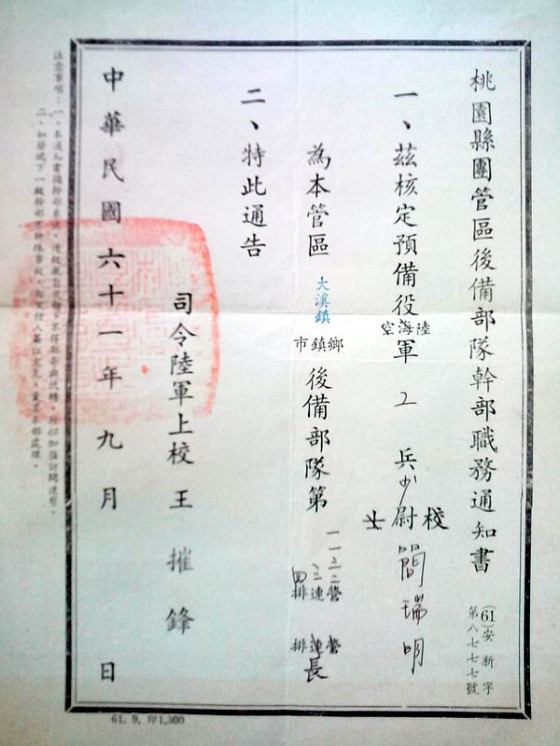 桃園縣團管區後備部隊幹部職務通知書
(61)安新字
第八七七七號
一、茲核定預備役陸海空軍工兵少校尉士簡瑞明
為本管區大溪鎮鄉鎮市後備部隊第
一二三營
一二三連
四排
營連排長
二、特此通告
司令陸軍上校王摧鋒
中華民國六十一年九月 日
注意事項：一、本通知書
二、如發現下一級幹部
61. 9. 印1,500